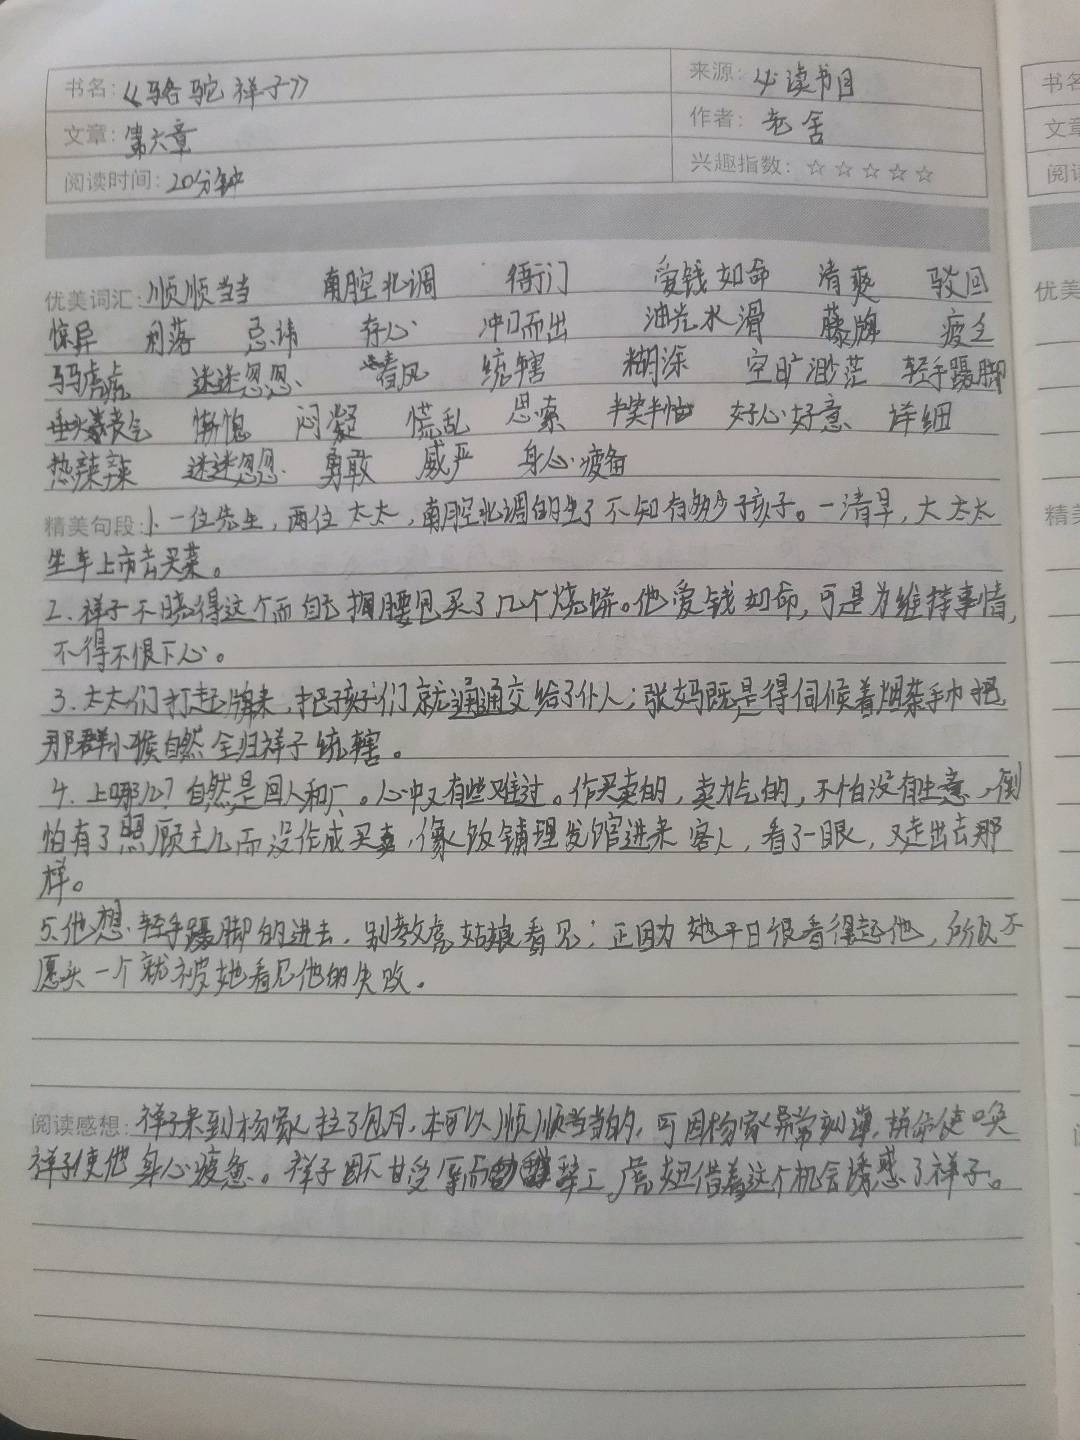 书名：《骆驼祥子》 来源：必读书目
文章：第六章 作者：老舍
阅读时间：20分钟 兴趣指数：☆☆☆☆☆
优美词汇：顺顺当当 南腔北调 衙门 爱钱如命 清爽 驳回
惊异 利落 忌讳 存心 冲口而出 油光水滑 藤牌 疲乏
马马虎虎 迷迷忽忽 春风 统辖 糊涂 空旷渺茫 轻手蹑脚
垂头丧气 懒惰 闷凝 慌乱 思索 半笑半恼 好心好意 详细
热辣辣 迷迷忽忽 勇敢 威严 身心疲惫
精美句段：1、一位先生，两位太太，南腔北调的生了不知有多少子孩子。一清早，大太太
坐车上市去买菜。
2、祥子不晓得这个而自己掏腰包买了几个烧饼。他爱钱如命，可是为维持事情，
不得不恨下心。
3、太太们打起牌来，把孩子们就通通交给了仆人；张妈既是得伺候着烟茶手巾把
那群小猴自然全归祥子统辖。
4、上哪儿？自然是回人和厂。心中又有些难过。作买卖的，卖力气的，不怕没有生意，倒
怕有了照顾主儿而没作成买卖，像饭铺理发馆进来客人，看了一眼，又走出去那
样。
5、他想轻手蹑脚的进去，别教虎姑娘看见；正因为她平日很看得起他，所以不
愿头一个就被她看见他的失败。
阅读感想：祥子来到杨家拉了包月，本可以顺顺当当的，可因杨家异常刻薄，拼命使唤
祥子使他身心疲惫。祥子因不甘受辱而辞工。虎妞借着这个机会诱惑了祥子。
书名
文章
阅读
优美
精美